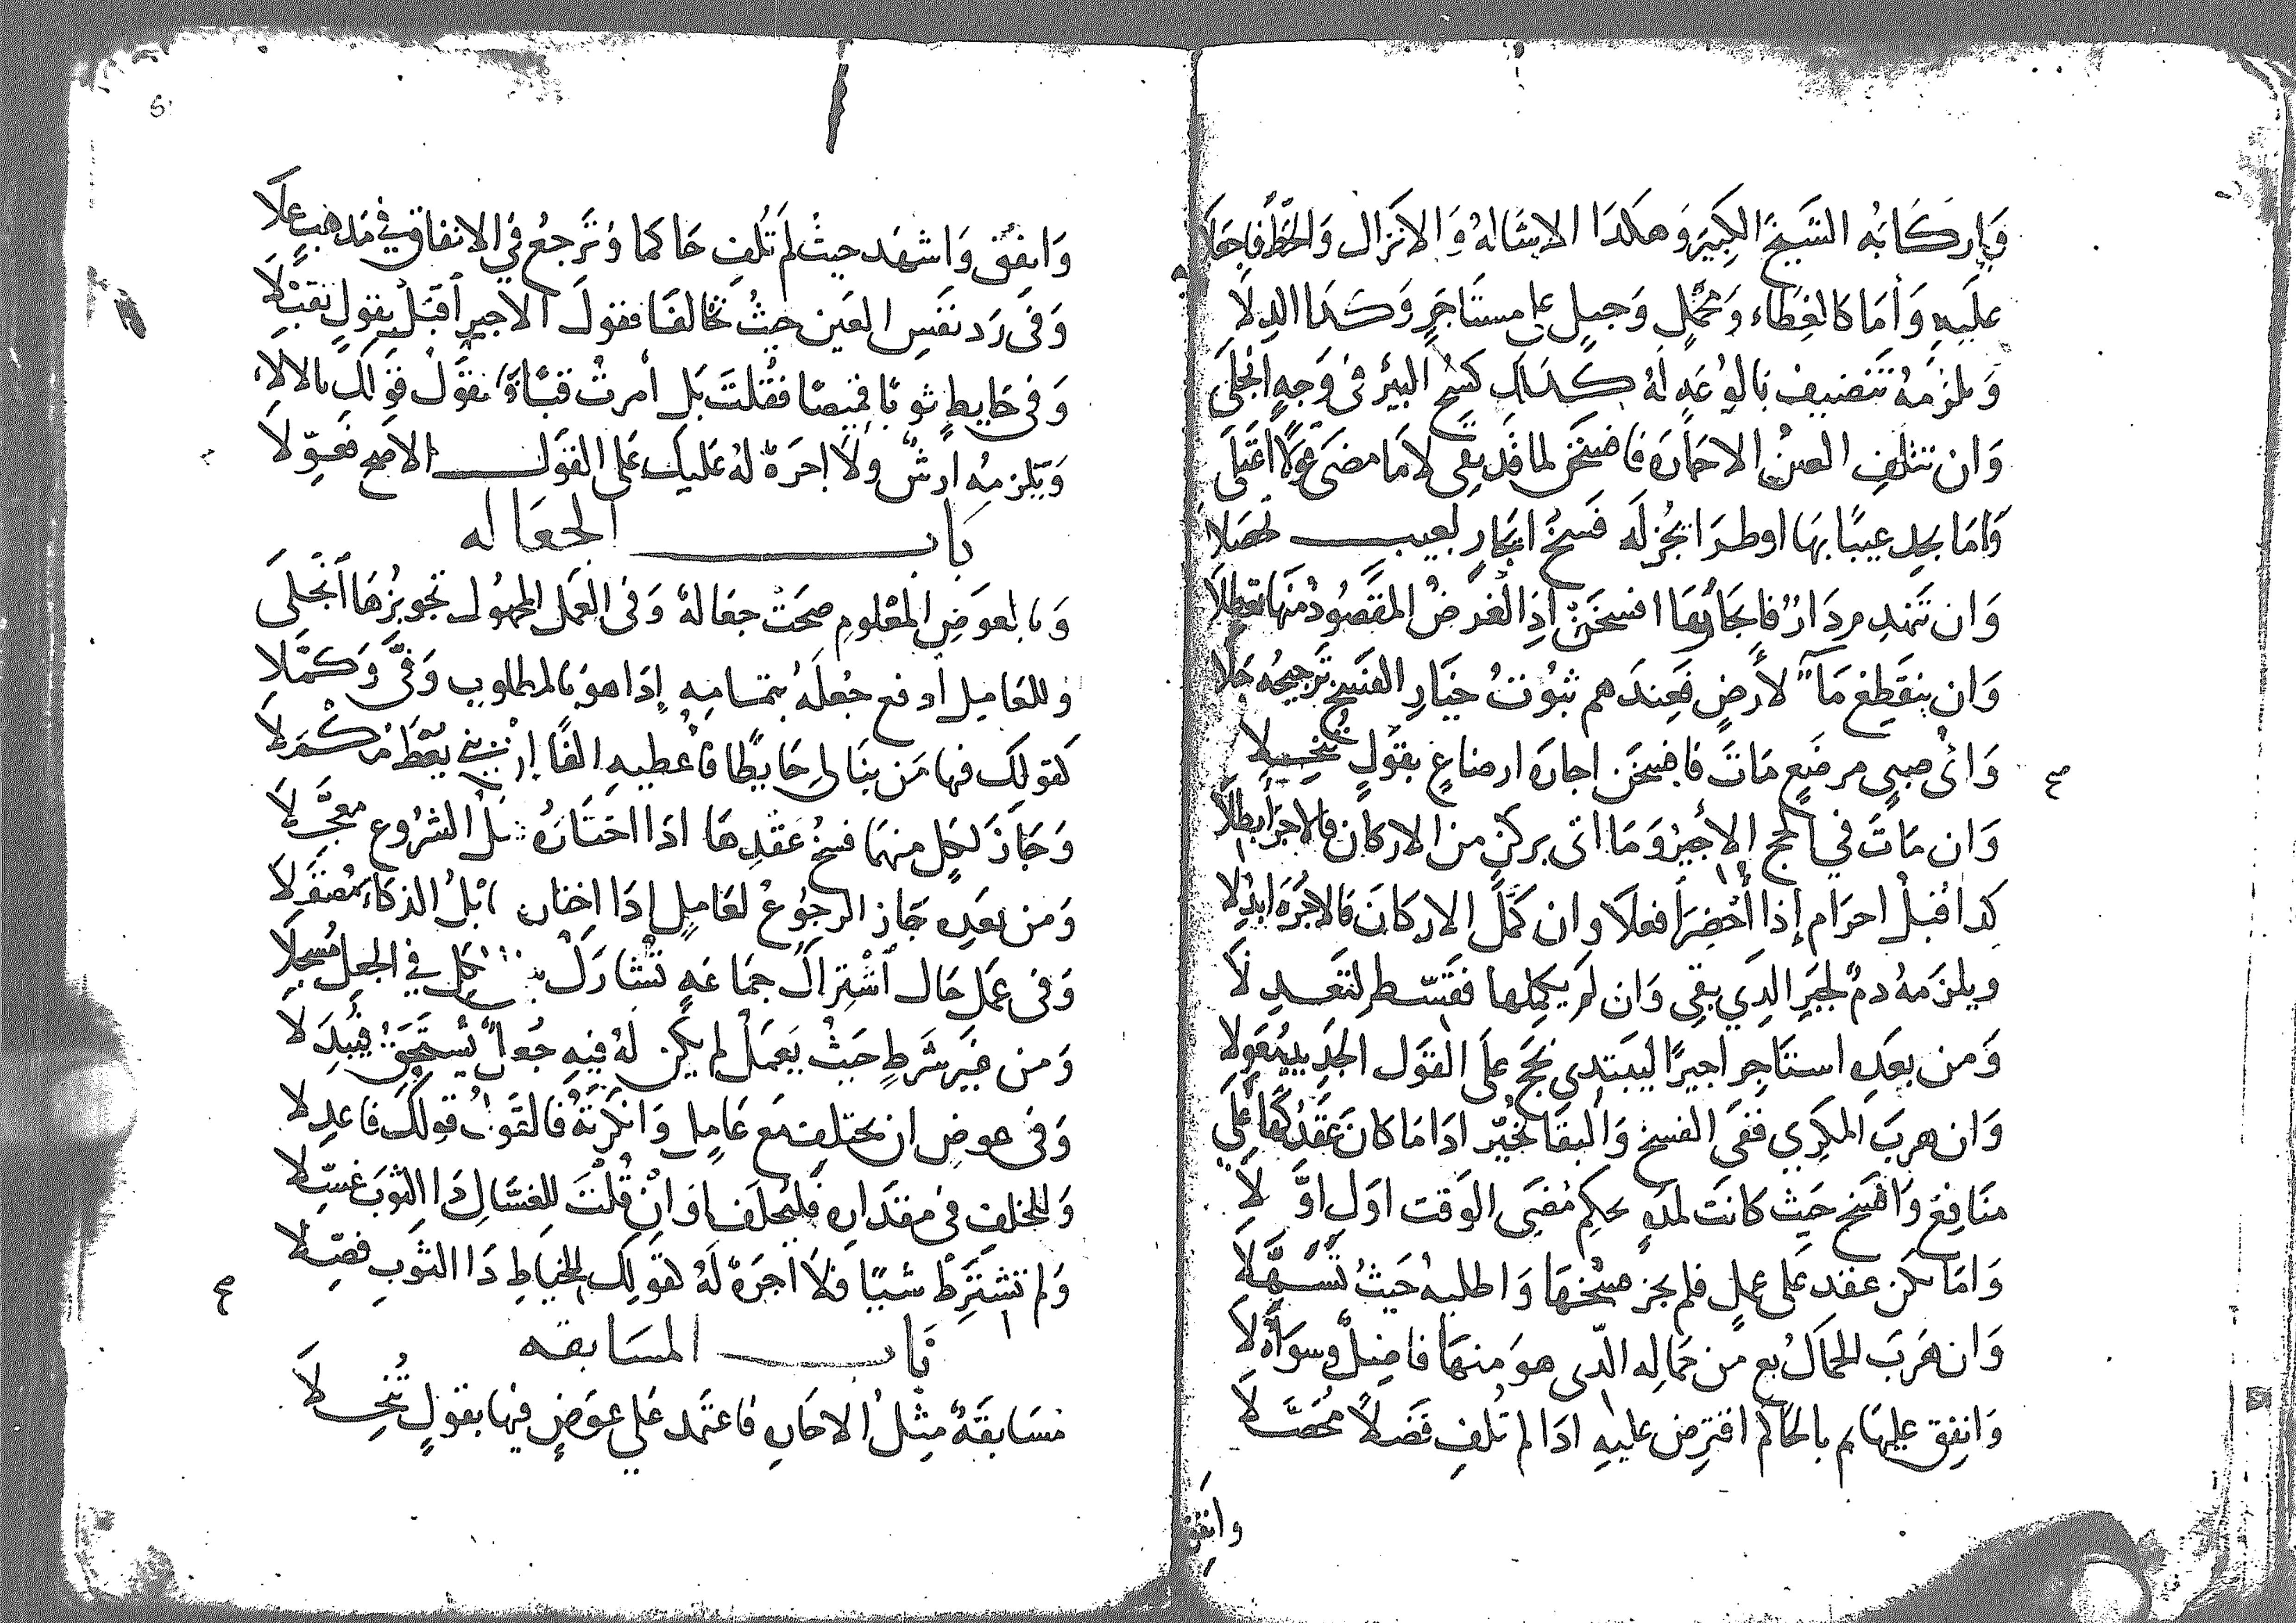 وَإِركَابُه الشَيخَ الكَبِيرَ وَهكَذا الاِشالهُ وَالانزال وَالحَطُّ فاجعَلا
عليَهِ وَأمَا كالغِطَاء وَمحَملٍ وَحبلٍ على مستَاجرٍ وَكذا الدِلَا
وَيلزَمهُ تَنضيف بَالُوعَةٍ لهُ كذلِك كسْح البئر فى وَجهٍ انجَلَى
وَان تتلفِ العينُ الاجَارَة فافسَخَن لما قد بقى لا مَا مضَى
وَامَا بجد عيبًا بهَا اوطرَا بجُز لَه فسَخُ ايجَارٍ لعيب تحصَلا
وَان تَنهدِم دَارٌ فايجَارُهَا افسخَنْ اذِ الغرَضُ المقصُودُ منهَا تعطلا
وَان ينقَطِع مَآءٌ لأرضٍ فعِندَهم ثبُوتُ خيَارِ الفسْخ ترجيحُه جَلا
وَاىُّ صبىٍ مرضَعٍ مَاتَ فافسَخَن اجارَة ارضاعٍ بقولٍ تنخِلا
وَان مَاتَ في الحج الأجيرُ وَمَا اتى بركنٍ من الاركان فالاجرَ أبطلا
كذا قبْلَ احرَام إذا أُحْضِرَا فعلَا وان كمَّلَ الاركانَ فالاجْرَة ابذُلا
ويلزمهُ دمٌ لجبرِ الذي بقى وَان لم يكملها فقَسّط لتعدِلَا
وَمن بعدِه استَاجِر اجيرًا ليبتدي بحَجٍ علَى القول الجدِيد
وَان هربَ المكرِي ففى الفسخ وَالبقا تخيّر اذا مَا كانَ عقدُك على
منَافِعَ وَافسَخ حَيث كانَت لمدةٍ بحكم مُضىِ الوَقت اوَل اوَّلَا
وَاما يكن عقد على عملٍ فلم يجز فسخهَا وَاطلبهُ حَيثُ تسَهَّلَا
وَان هرَبَ الجمالُ بع من جمَالِه الّذى هوَ منهَا فاضِلٌ وسوَاهُ لا
وَانفِق عليهَا ثم بالحاكم اقترِض عليهِ اذا لم تُلفِ فَضلاً مُحَصَّلَا
وانفِق
وَانفِق وَاشهَد حيثُ لم تُلفِ حاكما وَترجعُ في الانفاق في مَذهبٍ عَلَا
وَفى رَد نفسِ العَين حيثُ تخالفَا فقولَ الاجيرِ اقبَلْ بقولٍ تقبّلَا
وَفى خايطٍ ثوبًا قميصًا فقُلتَ بَل أمرتُ قبَآءً نقَّول قوَلك بالالا
وَيلزمِه أرشٌ ولَا اجرَة لهُ عَليك عَلى القوَل الاصح فعوّلَا
بَاب الجعَاله
وَبالعوَضِ المعْلومِ صحَت جعَالهٌ وَفى العمَل المجهُول تجويزُهَا انجلَى
وللعَامِل ادفع جُعلَهُ بتمامِهِ إِذا هوَ بالمطلوبِ وَفَّى وَكمَّلا
كقولِك فيها مَن بنَا لى حَايطًا فأُعطيهِ الفًا
وَجَازَ لكلٍ منهمَا فسخُ عَقدِهَا اذا اختَارَهُ قبل الشرُوع معجَّلَا
وَمن بعدِه جَاز الرجوُعُ لعَاملٍ إِذا اختَار
وَفى عمَل حَال اشْتراكَ جمَاعَةٍ تشَاركَ كلٌ في الجعل مُسجلَا
وَمن غَيرِ شرَطٍ حَيثُ يَعمَلْ لم يكن لهُ فيهِ جُعلٌ يَستحِقُ فيُبذَلَا
وَفى عوضٍ ان تختلف مَع عَامِلٍ وَانكرتَهُ فالقَولُ قولكَ فاعدِلا
وَللخلفِ فى مقدَارِه فليُحلَفا وَانْ قُلتَ للغسَّالِ ذا الثوبَ غسّلا
وَلم تشترِطْ شيئًا فلَا أُجرَة لَهُ كقولِك للخيَاطِ ذا الثوَبَ فصّلا
بَاب المسَابقه
مسَابقَةٌ مِثلُ الاجَارِ فاعتَمد عَلى عوَضٍ فيهَا بقولٍ تُنخِلَا